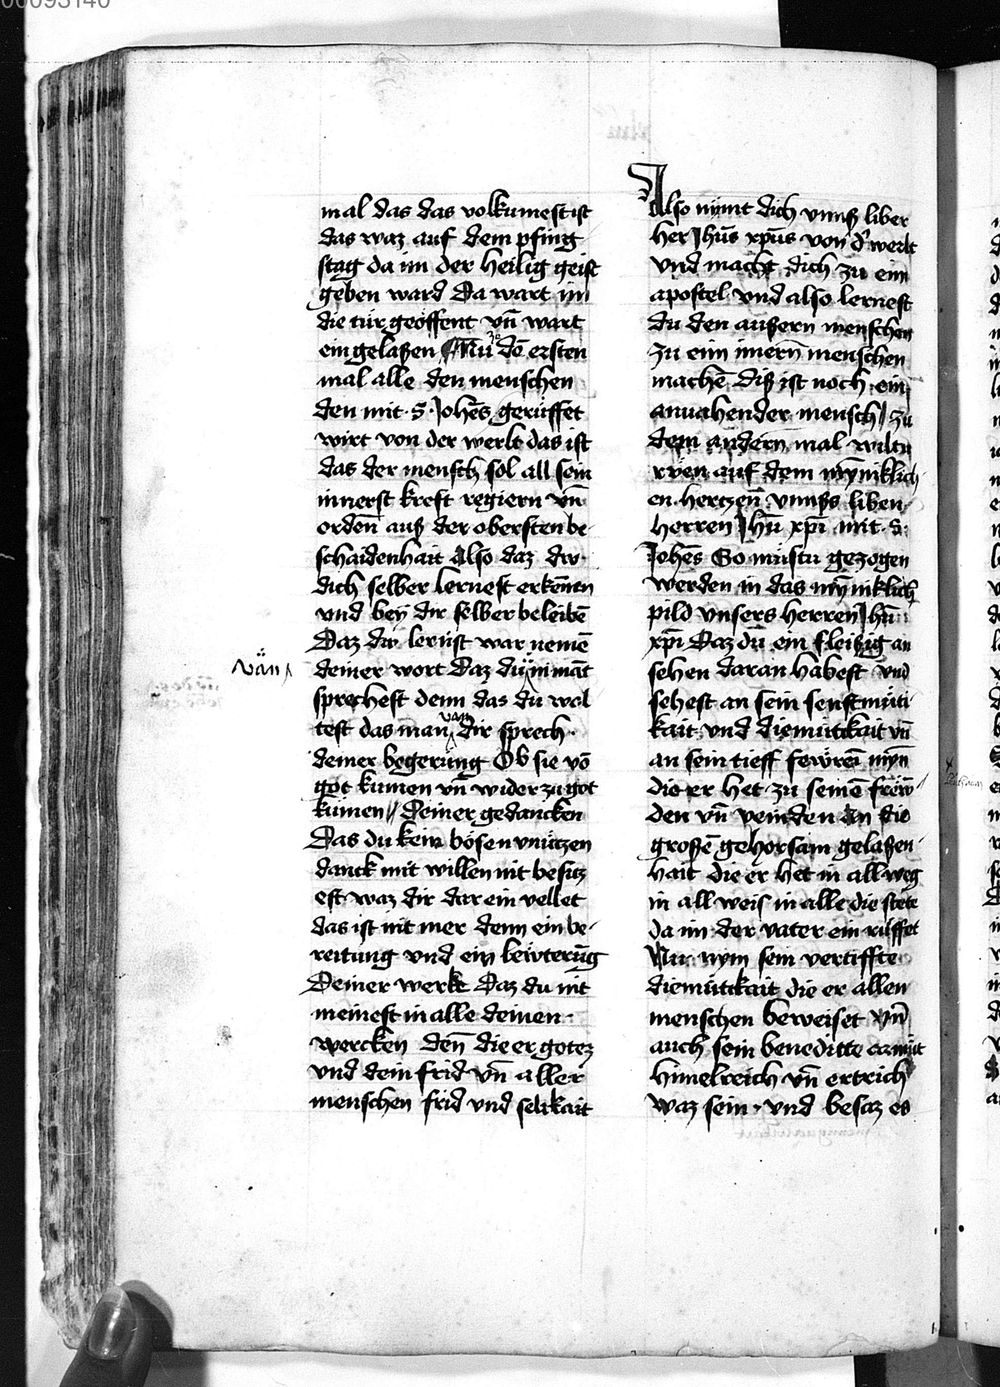 mal das das volkumest ist
das waz auf dem pfing
stag da im der heilig geist
geben ward Da wart im
die tür geöffent vn̄ wart
ein gelaßen Nu zo dē ersten
mal alle den menschen
den mit · S · Johēs gerüffet
wirt von der werlt das ist
das der mensch sol all sein
innerst kreft regiern vn̄
ordeñ auß der obersten be-
schaidenhait Also daz du
dich selber lernest erkēnen
vnd bey dir selber beleibē
Daz du lernst war nemē
vän
deiner wort Daz du nimāt
sprechest denn das du wol
test das man van dir sprech ·
deiner begerung Ob sie vō
got kumen vn̄ wider zu got
kumen Deiner gedancken
Das du kein bösen vnützen
danck mit willen nit besitz
est waz dir dar ein vellet
das ist nit mer denn ein be-
reitung vnd ein leẅterūg
Deiner werk Daz du nit
meinest in alle deinen
wercken deñ die er gotez
vnd dein frid vn̄ aller
menschen frid vnd selikait
Also nymt dich vnnß liber
her Jhūs xp̄us von d' werlt
vnd macht dich zu eim
apostel vnd also lernest
du den außern menschen
zu eim innern menschen
machē diß ist noch ein
anuahender mensch zu
dem andern mal wiltu
rẅen auf dem mynniklich
en herczen vnnßs liben
herren Jhū xp̄i mit · S ·
Johēs So müstu gezogen
werden in das mynniklich
pild vnsers herren Jhū
xp̄i Daz du ein fleißig an
sehen daran habest vnd
sehest an sein senftmüti-
kait vnd diemütikait vn̄
an sein tieff fewrein myn̄
die er het zu seinē frew̄
den vn̄ veinden An die
großē gehorsam gelaßen
hait die er het in all weg
in all weis in alle die stete
da im der vater ein rüffet
Nu nym sein vertiffte
diemütikait die er allen
menschen beweiset vn̄
auch sein beneditte armüt
himelreich vn̄ ertrich
waz sein · vnd besaz es